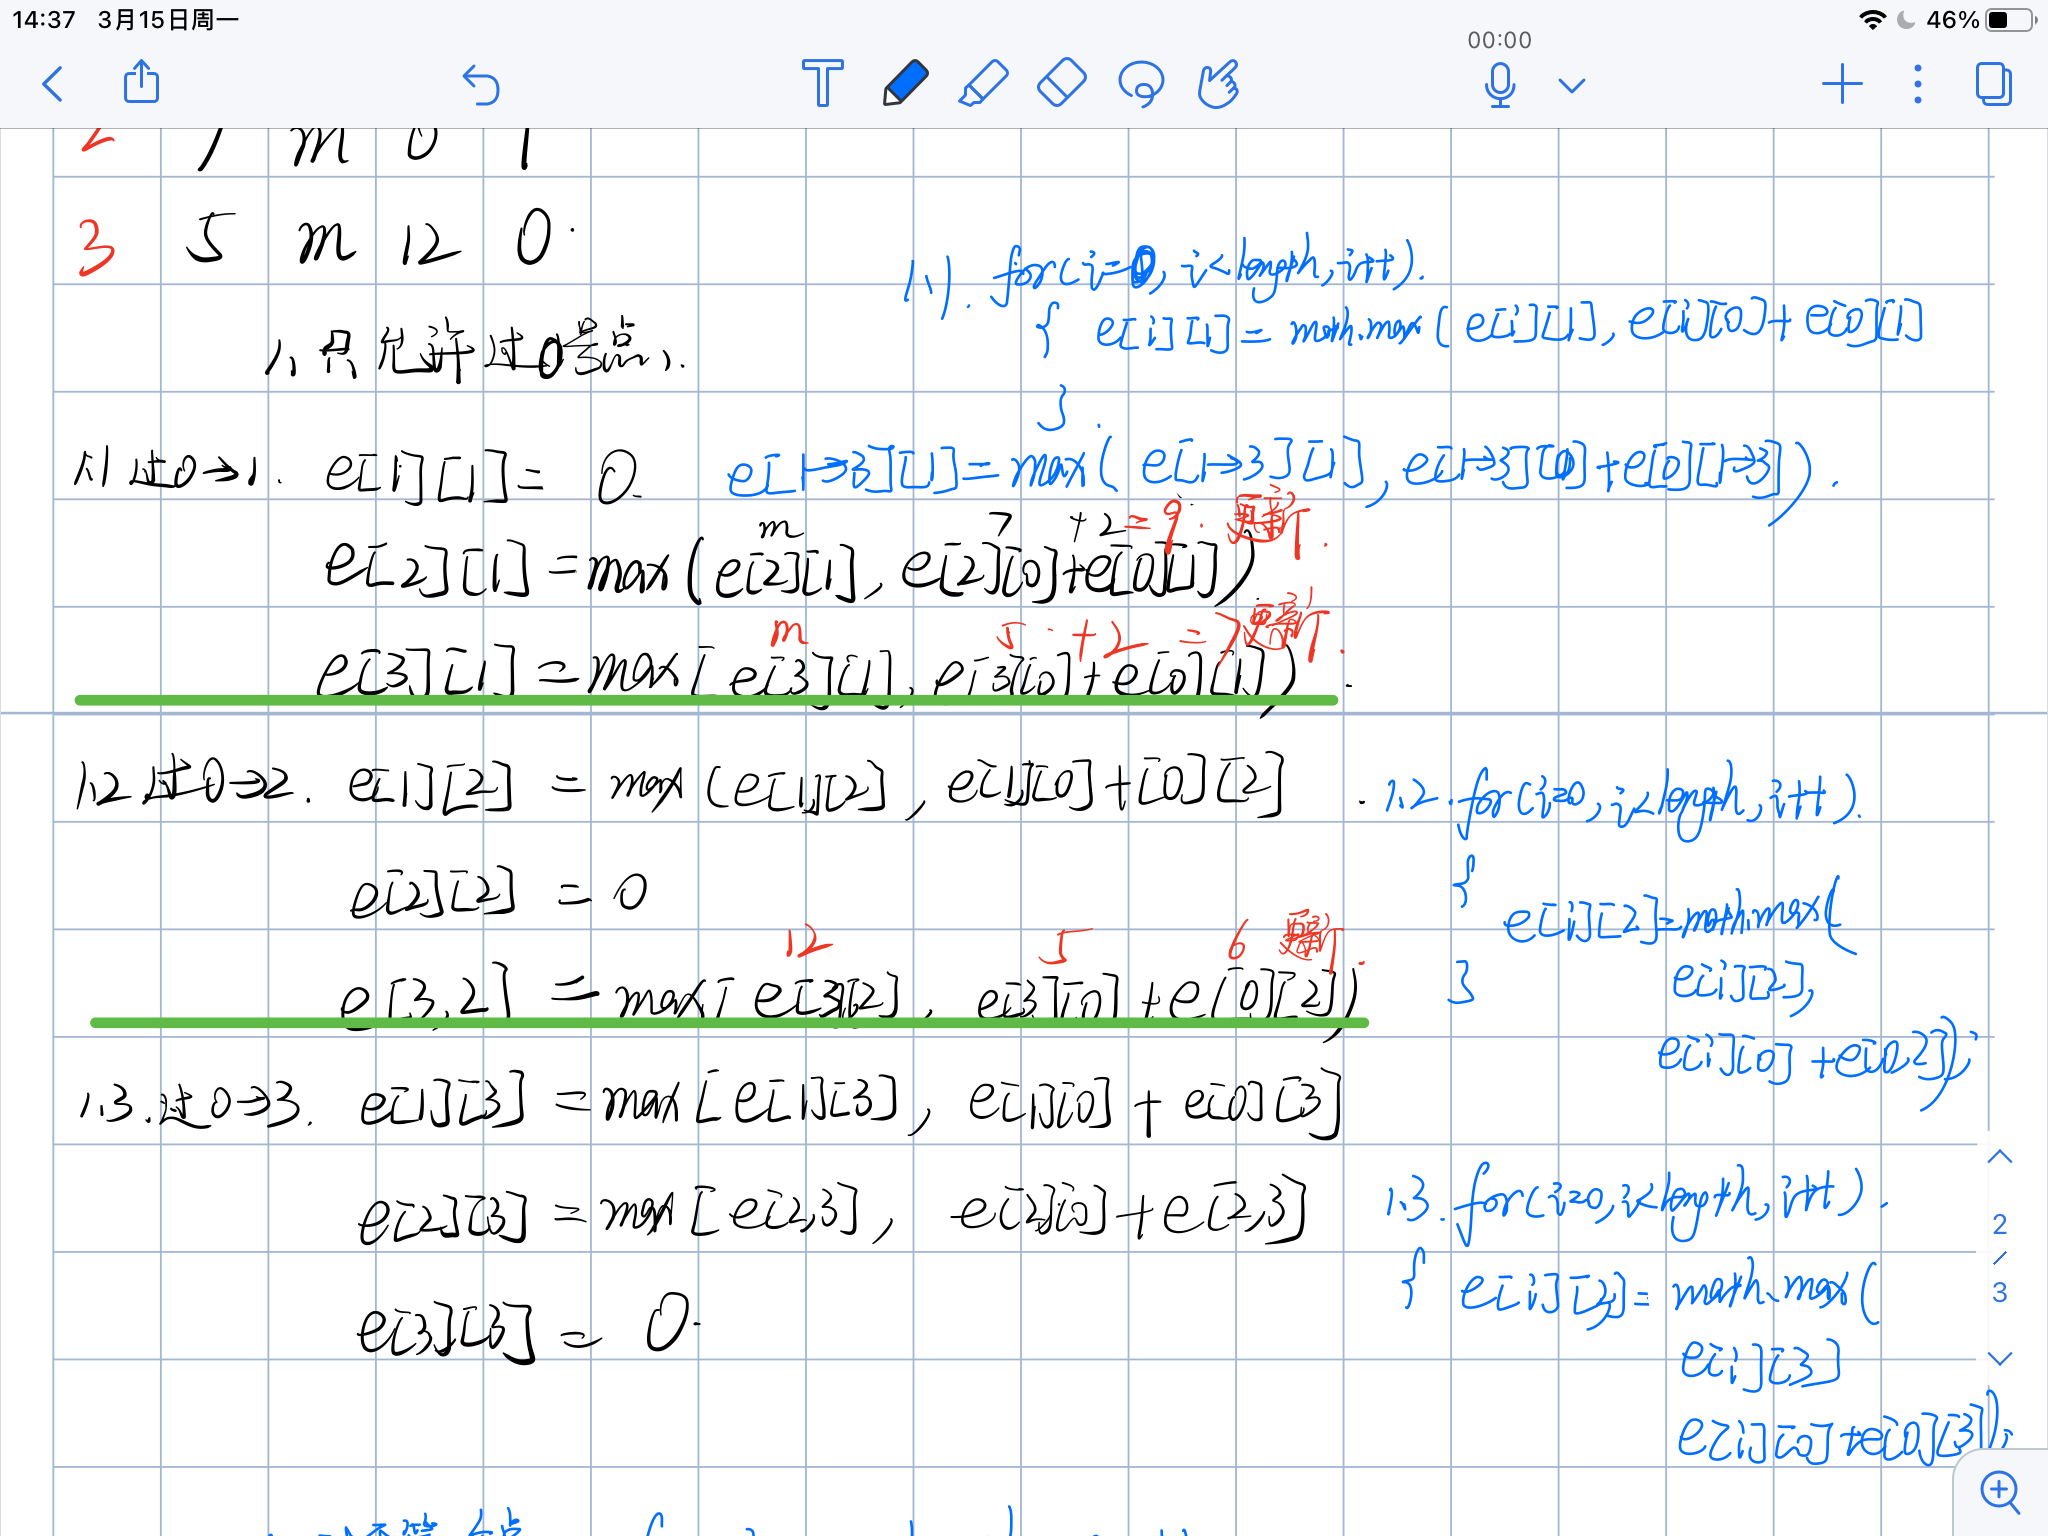 14:37 3月15日周一
46%
00:00
2 7 m 0 1
3 5 m 12 0.
1、只允许过0号点、.
1.1). for(i=0, i<length, i++).
{ e[i][1] = math.max(e[i][1], e[i][0]+e[0][1]
}.
1.1 过0→1. e[1][1]= 0.
e[1→3][1]=max( e[1→3][1], e[1→3][0]+e[0][1→3]).
m 7 +2=9. 更新.
e[2][1] =max(e[2][1], e[2][0]+e[0][1])
m 5 +2 =7更新.
e[3][1] =max[ e[3][1], e[3][0]+e[0][1]).
1.2 过0→2. e[1][2] = max (e[1][2], e[1][0]+[0][2]
e[2][2] = 0
12 5 6 更新.
e[3,2] = max[ e[3][2], e[3][0]+e[0][2])
1.2. for(i=0, i<length, i++).
{
e[i][2]=math.max(
} e[i][2],
e[i][0] +e[0,2]);
1.3.过0→3. e[1][3] =max[e[1][3], e[1][0]+ e[0][3]
e[2][3] =max[e[2,3], e[2][0]+e[2,3]
e[3][3] = 0.
1.3. for(i=0, i<length, i++).
{ e[i][3]= math.max(
e[i][3]
e[i][0]+e[0][3]);
2
/
3